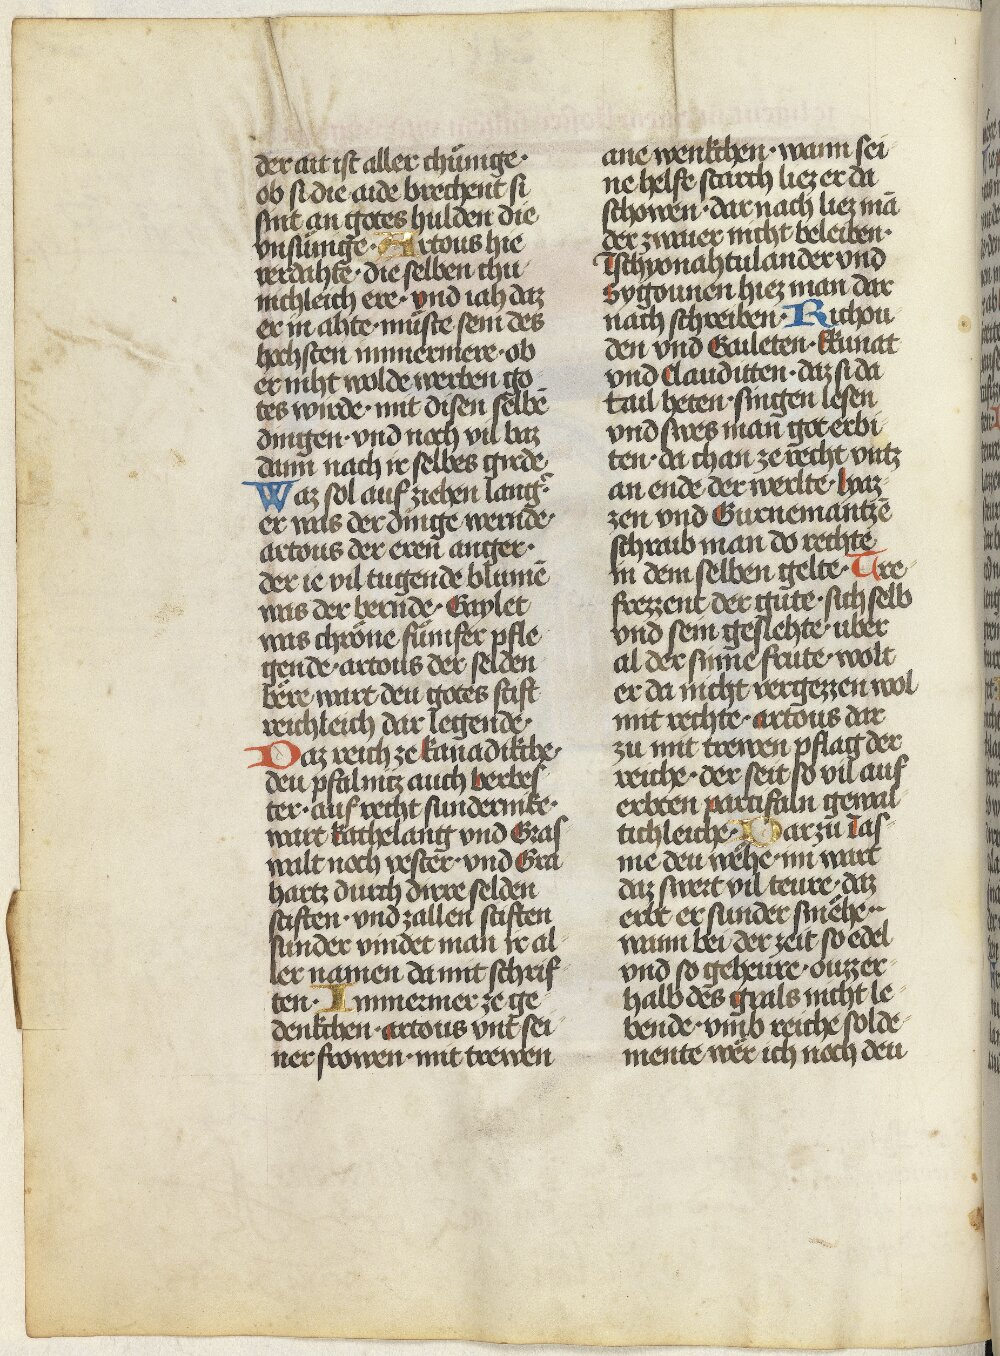 der art ist aller chünige·
ob si die aide brechent si
sint an gotes hulden die
vnsünige· Artous hie
verdahte· die selben chu
nichleich ere· vnd iah daz
er in ahte· müste sein des
hohsten nimmermere· ob
er niht wolde werben go
tes wirde· mit disen selbē
dingen· vnd noch vil baz
dann nach ir selbes girde
Waz sol auf ziehen lang·
er was der dinge wernde·
artous der eren anger·
der ie vil tugende blumē
was der bernde· Gaylet
was chrone fümfer pfle
gende· artous der selden
bere wart deu gotes stift
reichleich dar legende·
Daz reich ze kanadikche·
deu pfalnitz auch berbes
ter· auf recht sunderinke·
wart kathelang vnd Gras
walt noch vester· vnd Gra
hartz durch dirre selden
stiften· vnd zallen stiften
sunder vindet man ir al
ler namen da mit schrif
ten· Immermer ze ge
denkchen· artous vnt sei
ner frowen· mit trewen
ane wenkchen· wann sei
ne helfe starch liez er da
schowen· dar nach liez mā
der zwaier nicht beleiben·
Tschyonahtulander vnd
Sygounen hiez man dar
nach schreiben· Richou
den vnd Gauleten· Ekunat
vnd Clauditten· daz si da
tail heten· singen lesen
vnd swes man got erbi
ten· da chan ze recht vntz
an ende der werlte· waz
zen vnd Gurnemantzē
schraib man do rechte
in dem selben gelte· Tre
frezzent der gute· sich selb
vnd sein geslehte· uber
al der sinne frute· wolt
er da nicht vergezzen wol
mit rechte· artous dar
zu mit trewen pflag der
reiche· der seit so vil auf
erbten partifaln gewal
tichleiche· Dar zu ias
nie deu wehe· im wart
daz swert vil teure· daz
erbt er sunder smehe··
wann bei der zeit so edel
vnd so geheure· ouzzer
halb des grals nicht le
bende· vmb reiche solde
mente wer ich noch deu